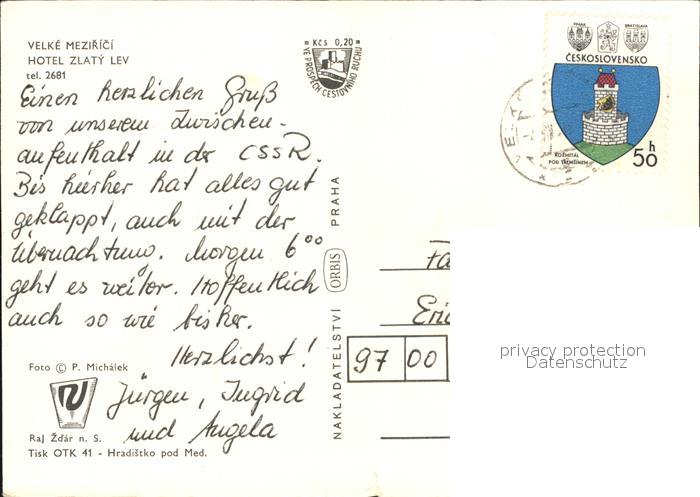 VELKÉ MEZIŘÍČÍ
HOTEL ZLATÝ LEV
tel. 2681
Einen herzlichen Gruß
von unserem Zwischen-
aufenthalt in der CSSR.
Bis hierher hat alles gut
geklappt, auch mit der
Übernachtung. Morgen 6⁰⁰
geht es weiter. Hoffentlich
auch so wie bisher.
Herzlichst!
Jürgen, Ingrid
und Angela
Foto © P. Michálek
Raj Žďár n. S.
Tisk OTK 41 - Hradištko pod Med.
Kčs 0,20
VE PROSPĚCH CESTOVNÍHO RUCHU
NAKLADATELSTVÍ ORBIS PRAHA
PRAHA
BRATISLAVA
ČESKOSLOVENSKO
ROŽMITÁL
POD TŘEMŠÍNEM
50 h
Fa
Eri
97 00
privacy protection
Datenschutz